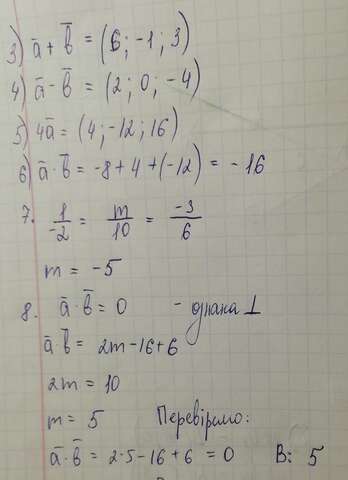 3) a̅ + b̅ = (6; -1; 3)
4) a̅ - b̅ = (2; 0; -4)
5) 4a̅ = (4; -12; 16)
6) a̅ · b̅ = -8 + 4 + (-12) = -16
7. 1/-2 = m/10 = -3/6
m = -5
8. a̅ · b̅ = 0 - ознака ⊥
a̅ b̅ = 2m - 16 + 6
2m = 10
m = 5 Перевіримо:
a̅ · b̅ = 2·5 - 16 + 6 = 0 В: 5